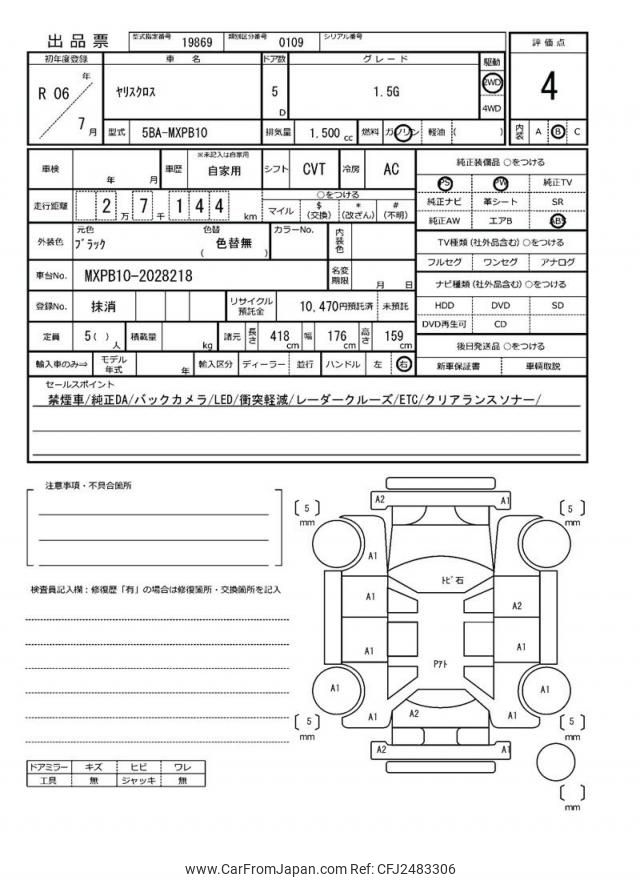 出品票 型式指定番号 19869 類別区分番号 0109 シリアル番号
初年度登録 車名 ドア数 グレード 駆動 評価点
R 06 年 7 月 ヤリスクロス 5 D 1.5G 2WD 4WD 4
型式 5BA-MXPB10 排気量 1.500 cc 燃料 ガソリン 軽油 ( ) 内装 A B C
車検 年 月 車歴 ※未記入は自家用 自家用 シフト CVT 冷房 AC
走行距離 2 万 7 千 1 4 4 km ○をつける マイル $ (交換) * (改ざん) # (不明)
外装色 元色 ブラック 色替 色替無 ( ) カラーNo. 内装色
車台No. MXPB10-2028218 名変期限 月 日
登録No. 抹消 リサイクル預託金 10,470円預託済 未預託
定員 5( ) 人 積載量 kg 諸元 長さ 418 cm 幅 176 cm 高さ 159 cm
輸入車のみ⇒ モデル年式 年 輸入区分 ディーラー 並行 ハンドル 左 右
純正装備品 ○をつける
PS PW 純正TV
純正ナビ 革シート SR
純正AW エアB ABS
TV種類 (社外品含む) ○をつける
フルセグ ワンセグ アナログ
ナビ種類 (社外品含む) ○をつける
HDD DVD SD
DVD再生可 CD
後日発送品 ○をつける
新車保証書 車輌取説
セールスポイント
禁煙車/純正DA/バックカメラ/LED/衝突軽減/レーダークルーズ/ETC/クリアランスソナー/
注意事項・不具合箇所
検査員記入欄：修復歴「有」の場合は修復箇所・交換箇所を記入
ドアミラー キズ ヒビ ワレ
工具 無 ジャッキ 無
A2 A1
5 mm 5 mm
A1
トビ石
A1 A2
A1 A1
Pアト
A1 A1
A1 A2 A1
5 mm 5 mm
A2 A1
mm
www.CarFromJapan.com Ref: CFJ2483306